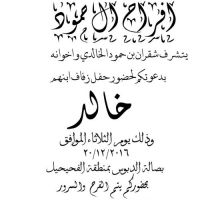 افراح ال حمود
يتشرف شقران بن حمود الخالدي واخوانه
بدعوتكم لحضور حفل زفاف ابنهم
خالد
وذلك يوم الثلاثاء الموافق
٢٠/١٢/٢٠١٦
بصالة الدبوس بمنطقة الفحيحيل
بحضوركم يتم الفرح والسرور